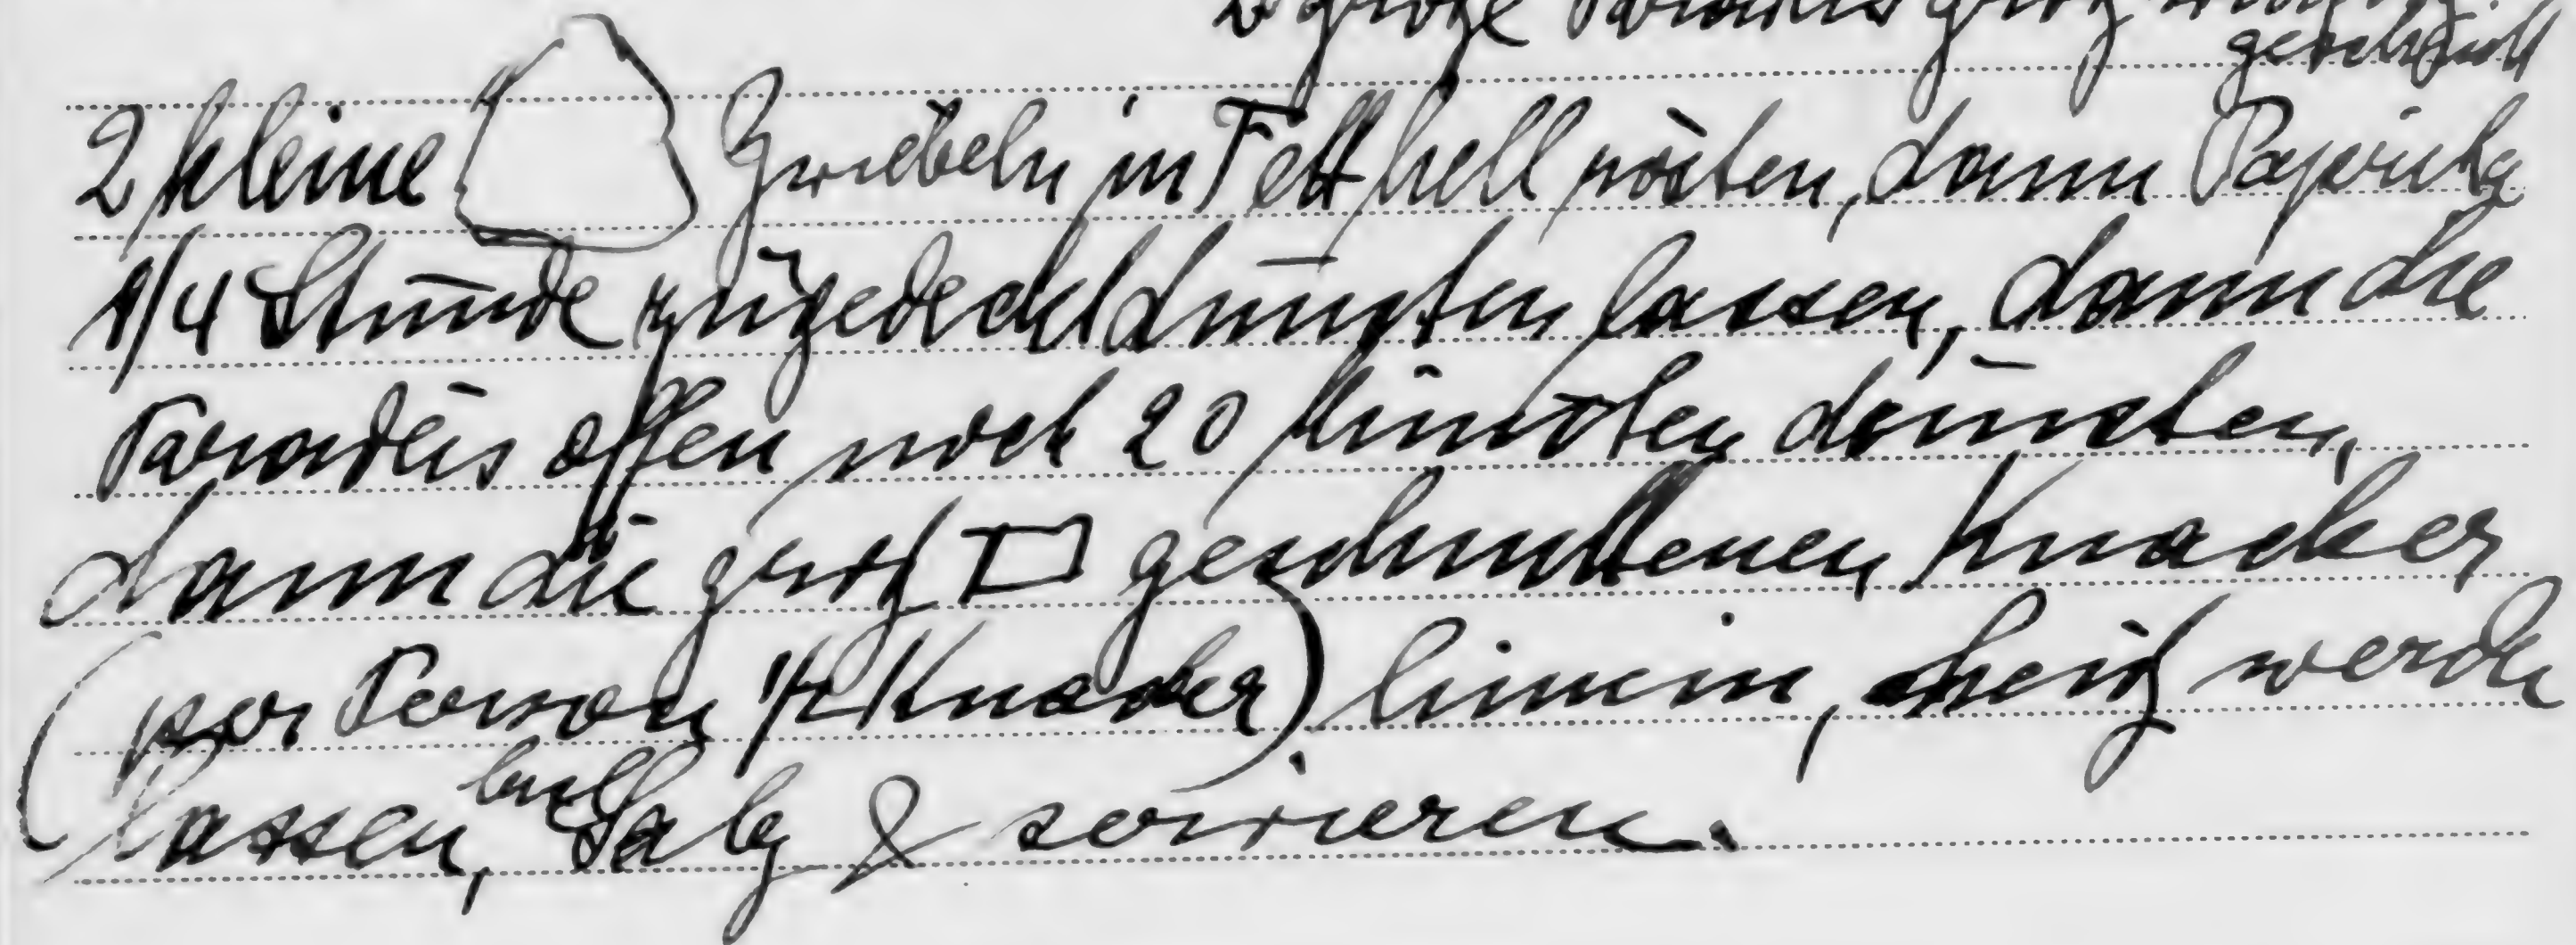 große
2 kleine Zwiebeln in Fett hell rösten, dann Paprika
1/4 Stunde zugedeckt dünsten lassen, dann die
Paradeis offen noch 20 Minuten dünsten,
dann die groß geschnittenen Knacker
(per Person 1/2 Knacker) hinein, heiß werden
lassen, Salz & servieren.